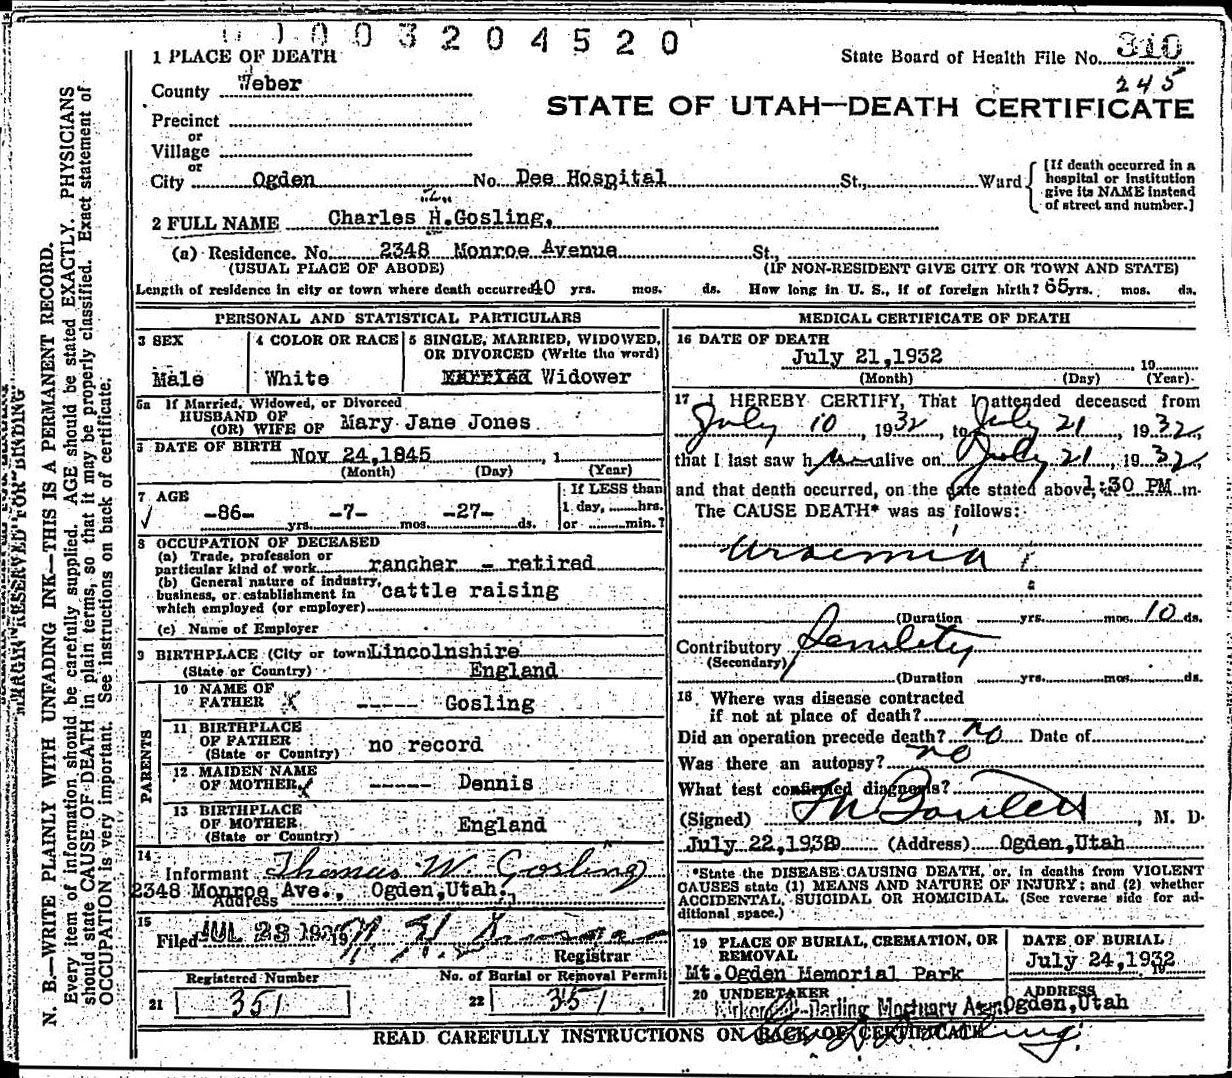 0003204520
1 PLACE OF DEATH
State Board of Health File No. 310
245
County Weber
STATE OF UTAH—DEATH CERTIFICATE
Precinct
or
Village
or
City Ogden No. Dee Hospital St., Ward
[If death occurred in a hospital or institution give its NAME instead of street and number.]
2 FULL NAME Charles H. Gosling,
(a) Residence. No. 2348 Monroe Avenue St.,
(USUAL PLACE OF ABODE) (IF NON-RESIDENT GIVE CITY OR TOWN AND STATE)
Length of residence in city or town where death occurred 40 yrs. mos. ds. How long in U. S., if of foreign birth? 65 yrs. mos. ds.
PERSONAL AND STATISTICAL PARTICULARS
3 SEX
Male
4 COLOR OR RACE
White
5 SINGLE, MARRIED, WIDOWED, OR DIVORCED (Write the word)
Married Widower
5a If Married, Widowed, or Divorced
HUSBAND OF
(OR) WIFE OF Mary Jane Jones
6 DATE OF BIRTH Nov 24,1845, 1
(Month) (Day) (Year)
7 AGE
-86- yrs. -7- mos. -27- ds.
If LESS than
1 day, hrs.
or min.?
8 OCCUPATION OF DECEASED
(a) Trade, profession or
particular kind of work rancher - retired
(b) General nature of industry,
business, or establishment in cattle raising
which employed (or employer)
(c) Name of Employer
9 BIRTHPLACE (City or town) Lincolnshire
(State or Country) England
PARENTS
10 NAME OF
FATHER x ----- Gosling
11 BIRTHPLACE
OF FATHER no record
(State or Country)
12 MAIDEN NAME
OF MOTHER x ----- Dennis
13 BIRTHPLACE
OF MOTHER England
(State or Country)
14
Informant Thomas W. Gosling
2348 Monroe Ave., Ogden,Utah.
Address
15
Filed JUL 23 19
Registrar
Registered Number
21 351
No. of Burial or Removal Permit
22 351
MEDICAL CERTIFICATE OF DEATH
16 DATE OF DEATH
July 21,1932 19
(Month) (Day) (Year)
17 I HEREBY CERTIFY, That I attended deceased from
July 10, 1932, to July 21, 1932,
that I last saw him alive on July 21, 1932,
and that death occurred, on the date stated above, 1:30 PM m.
The CAUSE DEATH* was as follows:
Uraemia
(Duration yrs. mos. 10 ds.
Contributory Senility
(Secondary)
(Duration yrs. mos. ds.
18 Where was disease contracted
if not at place of death?
Did an operation precede death? no Date of
Was there an autopsy? no
What test confirmed diagnosis?
(Signed) M. D.
July 22,1932 (Address) Ogden,Utah
*State the DISEASE CAUSING DEATH, or, in deaths from VIOLENT
CAUSES state (1) MEANS AND NATURE OF INJURY; and (2) whether
ACCIDENTAL, SUICIDAL OR HOMICIDAL. (See reverse side for additional space.)
19 PLACE OF BURIAL, CREMATION, OR REMOVAL
Mt.Ogden Memorial Park
DATE OF BURIAL
July 24,1932
19
20 UNDERTAKER
Darling Mortuary
ADDRESS
Ogden,Utah
READ CAREFULLY INSTRUCTIONS ON BACK OF CERTIFICATE
MARGIN RESERVED FOR BINDING
N. B.—WRITE PLAINLY WITH UNFADING INK—THIS IS A PERMANENT RECORD.
Every item of information should be carefully supplied. AGE should be stated EXACTLY. PHYSICIANS
should state CAUSE OF DEATH in plain terms, so that it may be properly classified. Exact statement of
OCCUPATION is very important. See instructions on back of certificate.